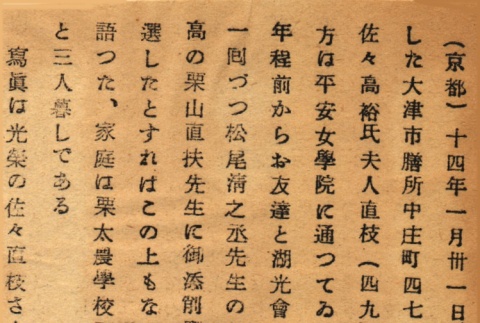 （京都）十四年一月卅一日
した大津市膳所中庄町四七
佐々高裕氏夫人直枝（四九
方は平安女學院に通つてゐ
年程前からお友達と湖光會
一囘づつ松尾淸之丞先生の
高の栗山直扶先生に御添削
選したとすればこの上もな
語つた、家庭は栗太農學校
と三人暮しである
寫眞は光榮の佐々直枝さ